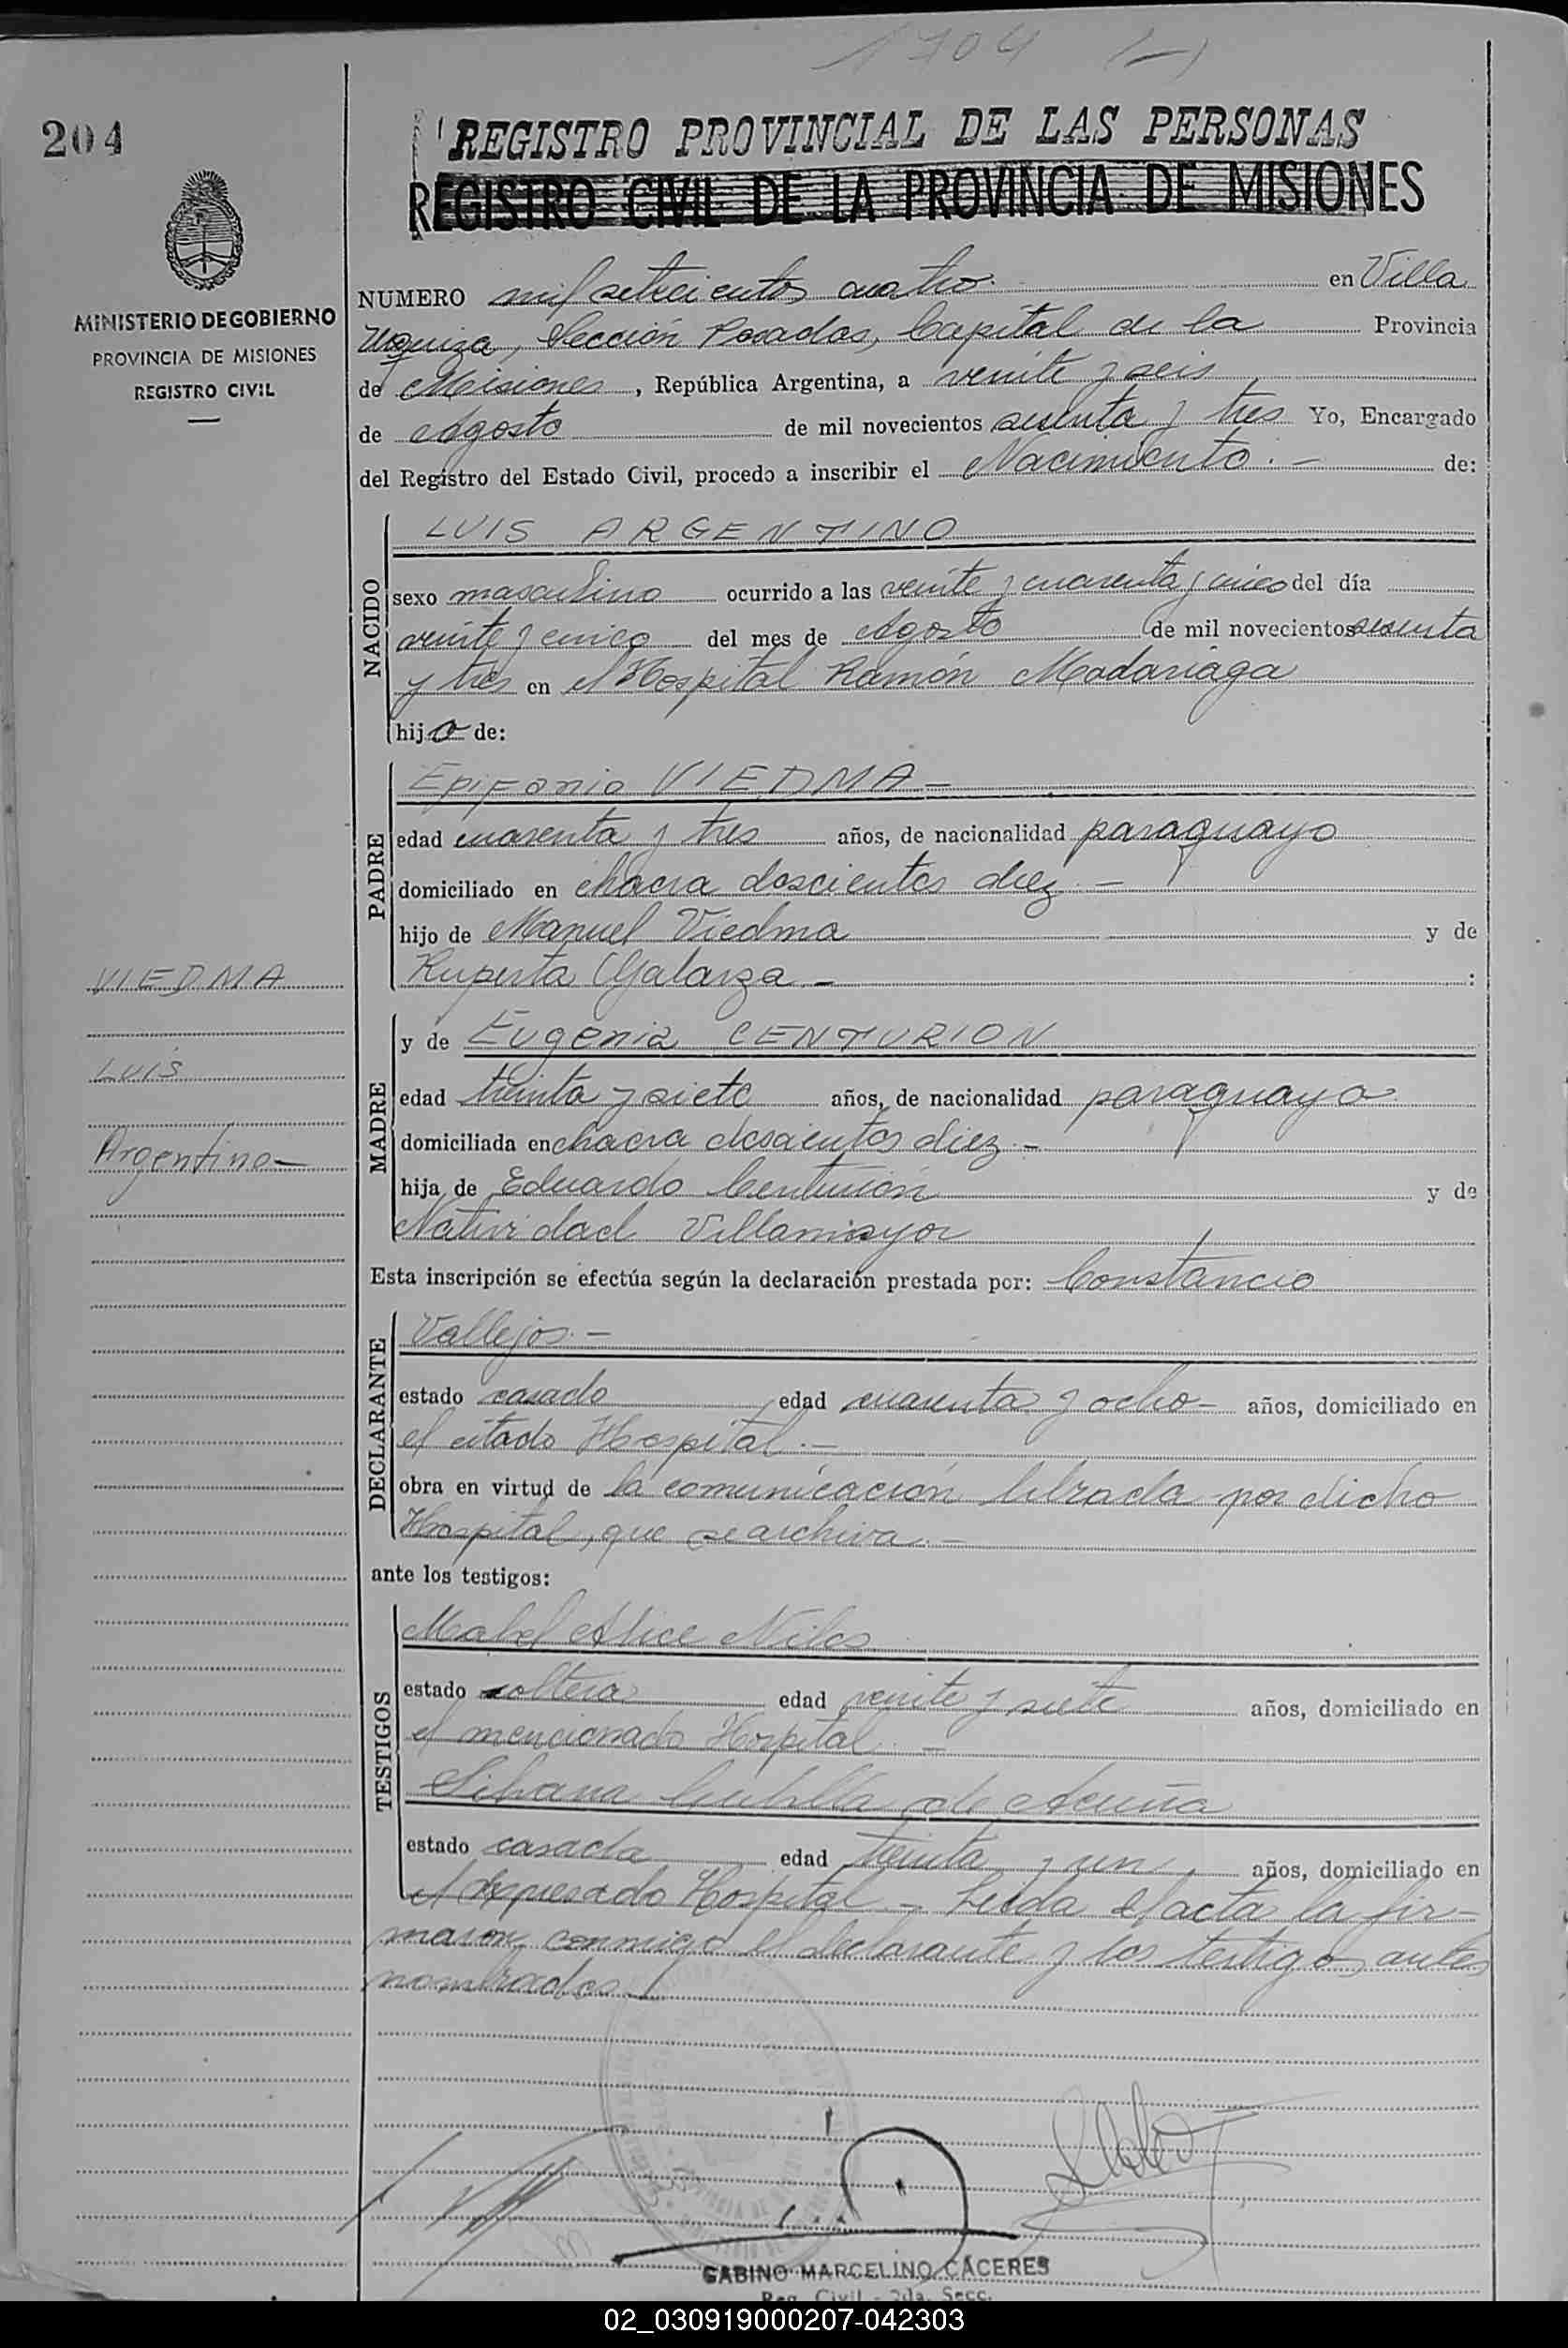 1704
204
REGISTRO PROVINCIAL DE LAS PERSONAS
REGISTRO CIVIL DE LA PROVINCIA DE MISIONES
MINISTERIO DE GOBIERNO
PROVINCIA DE MISIONES
REGISTRO CIVIL
NUMERO mil setecientos cuatro. en Villa
Urquiza, Sección Posadas, Capital de la Provincia
de Misiones, República Argentina, a veinte y seis
de Agosto de mil novecientos sesenta y tres Yo, Encargado
del Registro del Estado Civil, procedo a inscribir el Nacimiento. - de:
NACIDO
LUIS ARGENTINO
sexo masculino ocurrido a las veinte y cuarenta y cinco del día
veinte y cinco del mes de Agosto de mil novecientos sesenta
y tres en el Hospital Ramón Madariaga
hijo de:
PADRE
Epifanio VIEDMA -
edad cuarenta y tres años, de nacionalidad paraguayo
domiciliado en chacra doscientos diez. -
hijo de Manuel Viedma y de
Ruperta Galarza -:
VIEDMA
LUIS
Argentino -
MADRE
y de Eugenia CENTURION
edad treinta y siete años, de nacionalidad paraguaya
domiciliada en chacra doscientos diez. -
hija de Eduardo Centurión y de
Natividad Villamayor
Esta inscripción se efectúa según la declaración prestada por: Constancio
DECLARANTE
Vallejos. -
estado casado edad cuarenta y ocho - años, domiciliado en
el citado Hospital. -
obra en virtud de la comunicación librada por dicho
Hospital, que se archiva. -
ante los testigos:
TESTIGOS
Mabel Alice
estado soltera edad veinte y siete años, domiciliado en
el mencionado Hospital. -
de Acuña
estado casada edad treinta y un años, domiciliado en
el expresado Hospital. - Leída el acta la fir-
maron, conmigo el declarante y los testigos antes
nombrados. -
GABINO MARCELINO CACERES
Reg. Civil - 2da. Secc.
02_030919000207-042303